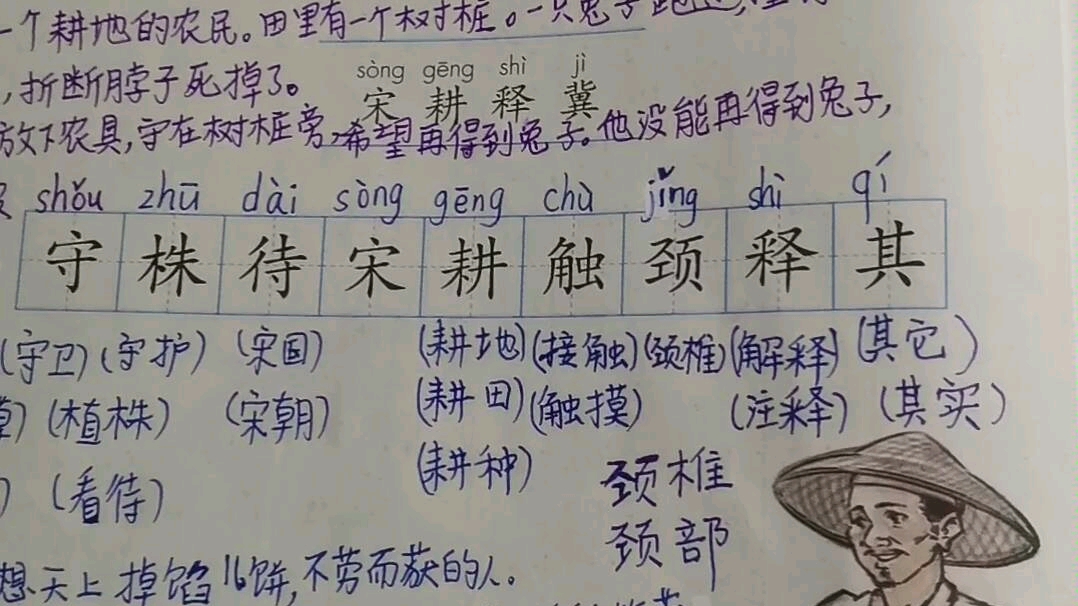 一个耕地的农民。田里有一个树桩。一只兔子跑过,
,折断脖子死掉了。
sòng gēng shì jì
宋 耕 释 冀
放下农具,守在树桩旁,希望再得到兔子。他没能再得到兔子,
shǒu zhū dài sòng gēng chù jǐng shì qí
守 株 待 宋 耕 触 颈 释 其
(守卫)(守护) (宋国) (耕地)(接触)(颈椎)(解释)(其它)
(植株) (宋朝) (耕田)(触摸) (注释) (其实)
) (看待) (耕种) 颈椎
颈部
想天上掉馅饼,不劳而获的人。